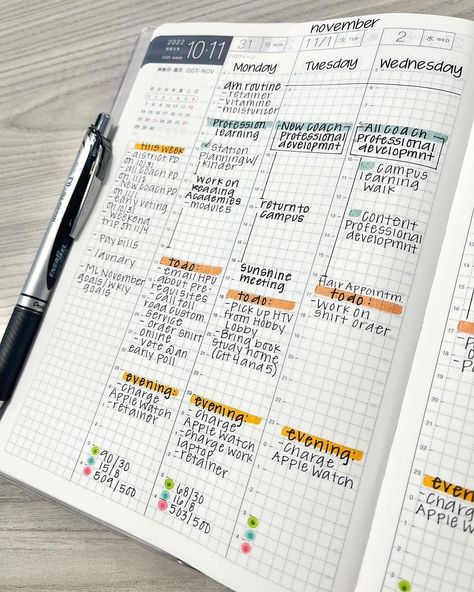 november
2022
10·11
OCT-NOV
31 月
11/1 火
2 水 WED
Monday
Tuesday
Wednesday
this week
- district PD
on 10/31
- all coach PD
on 11/2
- New coach PD
on 11/1
- early voting
on 11/3
- weekend
trip on 11/4
- Pay bills
- laundry
- ML November
goals/wkly
goals
am routine
- retainer
- vitamine
- moisturizer
Profession
learning
Station
Planning w/
kinder
work on
Reading
Academies
- module 5
to do:
- email HPU
about pre-
requisites
- call toll
road custom.
service
- order shirt
online
- vote @ an
early poll
evening:
- charge
Apple Watch
- retainer
90/30
15/8
509/500
New coach
Professional
developmnt
return to
campus
sunshine
meeting
to do:
- Pick up HTV
from Hobby
Lobby
- Bring book
study home
(Ch 4 and 5)
evening:
- charge
Apple Watch
- charge work
laptop
- retainer
68/30
16/8
503/500
All coach
Professional
developmnt
campus
learning
walk
Content
Professional
developmnt
Hair Appointm.
to do:
- work on
shirt order
evening:
- charge
Apple Watch
evening:
- charge
Apple Watch
ENERGEL